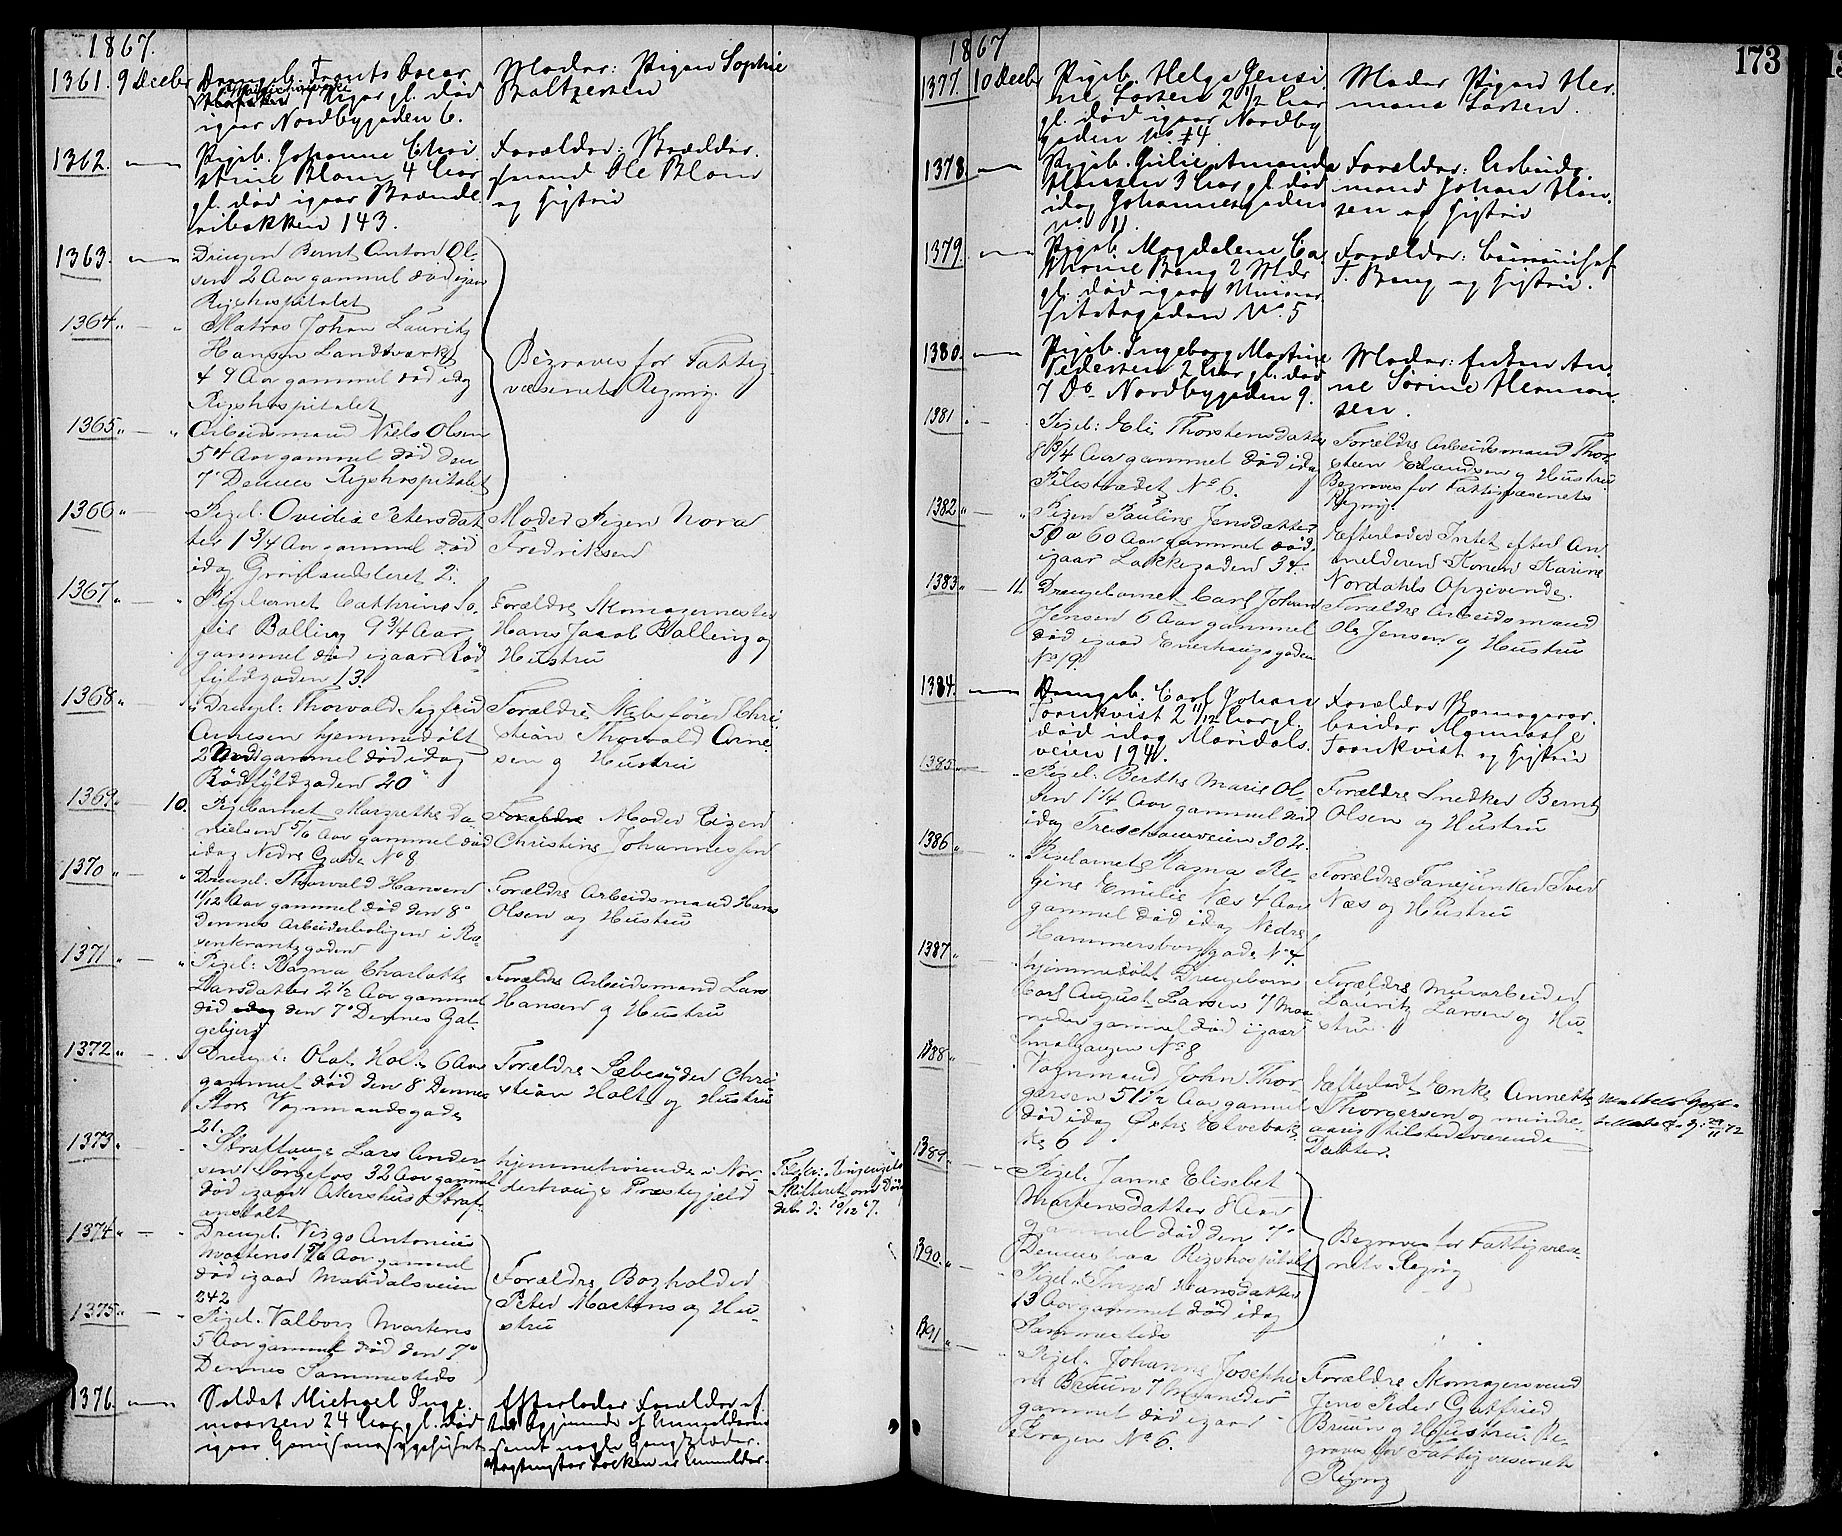 1867.
1361. 9 Decebr
Drengeb. Frants Oscar
igaar Nordbygaden 6.
Moder: Pigen Sophie
Baltzersen
1362.
Pigeb. Johanne Chri-
stine Blom 4 Aar
gl. død igaar
bakken 143.
Forældre:
mand Ole Blom
og Hustru
1363.
Drengen Bernt Anton Ol-
sen 2 Aar gammel død igaar
Rigshospitalet
1364
Matros Johan Lauritz
Hansen Landsværk
49 Aar gammel død idag
Rigshospitalet
Begraves for Fattig-
væsenets Regning.
1365
Arbeidsmand Niels Olsen
54 Aar gammel død den
7de Dennes Rigshospitalet
1366
Pigeb. Ovidia Petersdat-
ter 1 3/4 Aar gammel død
idag Grønlandsleret 2.
Moder Pigen Nora
Fredriksen
1367
Pigebarnet Cathrine So-
fie Balling 9 3/4 Aar
gammel død igaar Rød-
fyldgaden 13.
Forældre Skomagermester
Hans Jacob Balling og
Hustru
1368
Drengeb. Thorvald Sigfrid
Arnesen hjemmedøbt
2 gammel død idag
Rødfyldgaden 20
Forældre Chri-
stian Thorvald Arne-
sen og Hustru
1369 10.
Pigebarnet Margrethe Da-
nielsen 5/6 Aar gammel død
idag Nedre Gade No 8
Forældre Moder Pigen
Christine Johannessen
1370
Drengeb. Thorvald Hansen
11/12 Aar gammel død den 8de
Dennes Arbeiderboligen i Ro-
senkrantzgaden
Forældre Arbeidsmand Hans
Olsen og Hustru
1371
Pigeb. Ragna Charlotte
Larsdatter 2 1/2 Aar gammel
død idag den 7de Dennes Gal-
gebjerg
Forældre Arbeidsmand Lars
Hansen og Hustru
1372
Drengeb. Olaf Holt 6 Aar
gammel død den 8de Dennes
Store Vognmandsgade
21.
Forældre Sæbesyder Chri-
stian Holt og Hustru
1373
Straffange Lars Ander-
sen 32 Aar gammel
død igaar Akershus Straf-
anstalt
hjemmehørende i Nor-
derhougs Præstegjeld
10/12 67.
1374
Drengeb. Viggo Antonius
Martens 1 5/6 Aar gammel
død igaar Maridalsveien
242
Forældre Bogholder
Peter Martens og Hu-
stru
1375
Pigeb. Valborg Martens
5 Aar gammel død den 7de
Dennes Sammesteds
1376.
Soldat Michael Inge-
24 Aar gl. død
igaar Garnisonssygehuset
Efterlader Forældre
1867
173
1377. 10 Decebr
Pigeb. Helga Jensi-
ne Larsen 2 1/2 Aar
gl. død igaar Nordby
gaden No. 14.
Moder Pigen Her-
mana Larsen.
1378.
Pigeb. Julie Amanda
Hansen 3 Aar gl. død
idag Johannesgaden
No. 11
Forældre: Arbeids-
mand Johan Han-
sen og Hustru
1379.
Pigeb. Magdalene Ca-
thrine Bang 2 Mdr
gl. død igaar Univer-
sitetsgaden No. 5
Forældre:
F. Bang og Hustru.
1380.
Pigeb. Ingeborg Martine
Pedersen 2 Aar gl. død
7 Ds Nordbygaden 9.
Moder: Enken An-
ne Sørine Herman-
sen.
1381
Pigeb: Eli Thorstensdatter
8 3/4 Aar gammel død idag
Pilestrædet No 6.
Forældre Arbeidsmand Thor-
sten Erlandsen og Hustru
Begraves for Fattigvæsenets
Regning.
1382
Pigen Pauline Jensdatter
50 a 60 Aar gammel død
igaar Lakkegaden 34.
Efterlader Intet efter An-
melderen Konen Karine
Nordahls Opgivende.
1383 11.
Drengebarnet Carl Johan
Jensen 6 Aar gammel
død igaar Enerhougsgaden
No 19.
Forældre Arbeidsmand
Ole Jensen og Hustru
1384.
Drengeb. Carl Johan
Tornkvist 2 11/12 Aar gl.
død idag Maridals-
veien 194.
Forældre
Tornkvist og Hustru
1385
Pigeb: Berthe Marie Ol-
sen 1 1/4 Aar gammel død
idag Treschouwveien 302.
Forældre Snedker Bernt
Olsen og Hustru
1386
Pigebarnet Ragna Re-
gine Emilie Næs 4 Aar
gammel død idag Nedre
Hammersborggade No 4.
Forældre Fanejunker Iver
Næs og Hustru
1387
hjemmedøbt Drengebarn
Carl August Larsen 7 Maa-
neder gammel død igaar
Smalgangen No 8
Forældre Murarbeider
Lauritz Larsen og Hu-
stru
1388
Vognmand John Thor-
gersen 51 1/2 Aar gammel
død idag Østre Elvebak-
ke 6
Efterladt Enke Annette
Thorgersen og mindre-
aarig tilstedeværende
Datter.
1389
Pigeb. Janna Elisebet
Martensdatter 8 Aar
gammel død den 7de
Dennes paa Rigshospitalet
Begraves for Fattigvæse-
nets Regning
1390
Pigeb. Hansdatter
13 Aar gammel død idag
Sammesteds
1391
Pigeb. Johanne Josephi-
ne Bruun 7 Maaneder
gammel død igaar
No 6.
Forældre Skomagersvend
Jens Peder Gutfried
Bruun og Hustru. Be-
graves for Fattigvæsenets
Regning